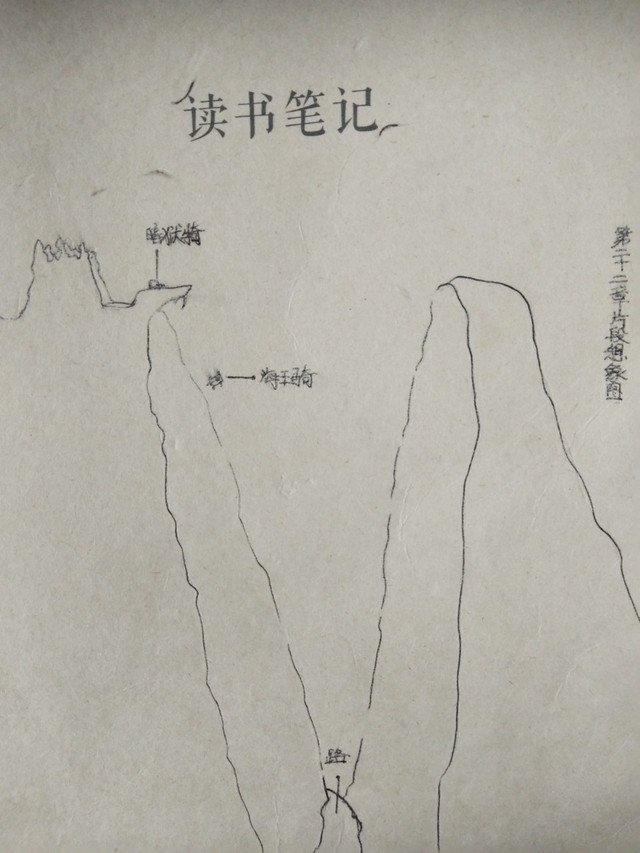 读书笔记
暗狱骑
海王骑
路
第二十二章片段想象图